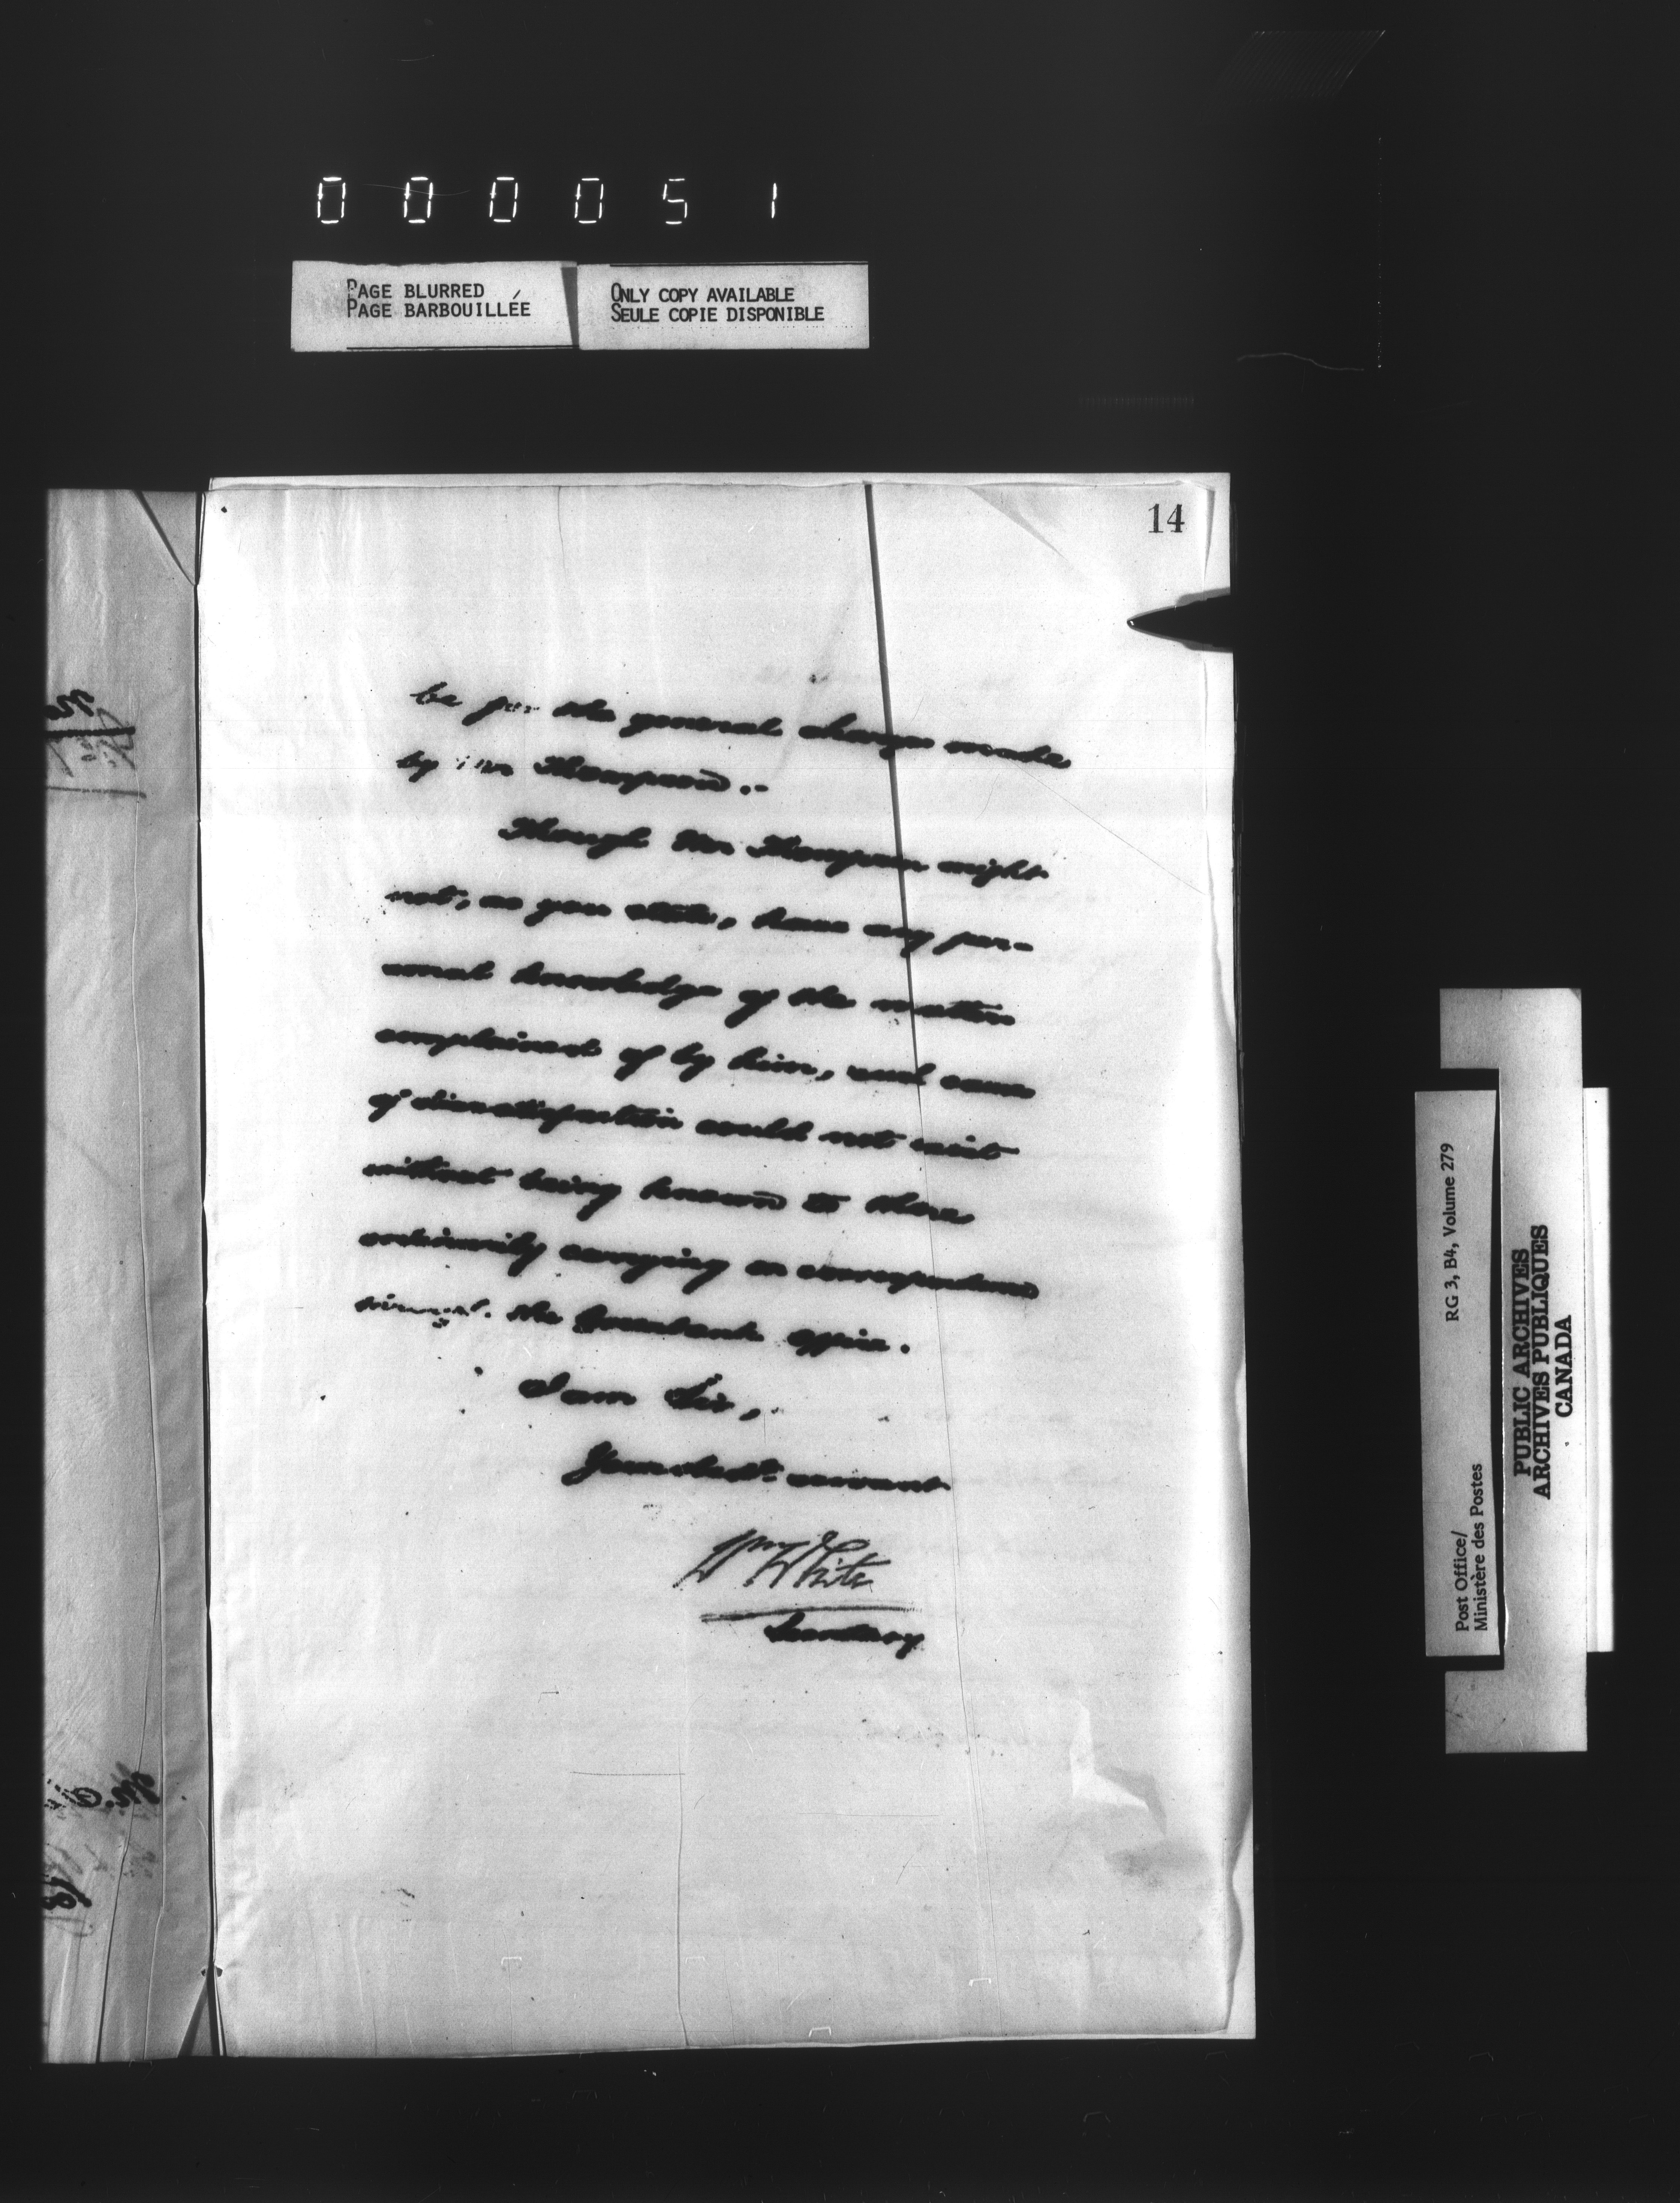 000051
PAGE BLURRED
PAGE BARBOUILLÉE
ONLY COPY AVAILABLE
SEULE COPIE DISPONIBLE
14
be for the general charge made
by Mr Thompson.-
Though Mr Thompson might
not, as you state, have any per-
sonal knowledge of the matters
complained of by him, real cause
of dissatisfaction could not exist
without being known to those
ordinarily carrying on correspondence
the Greenbank office.
I am Sir,
Your obedt. servant
Wm White
Secretary
Post Office/
Ministère des Postes
RG 3, B4, Volume 279
PUBLIC ARCHIVES
ARCHIVES PUBLIQUES
CANADA